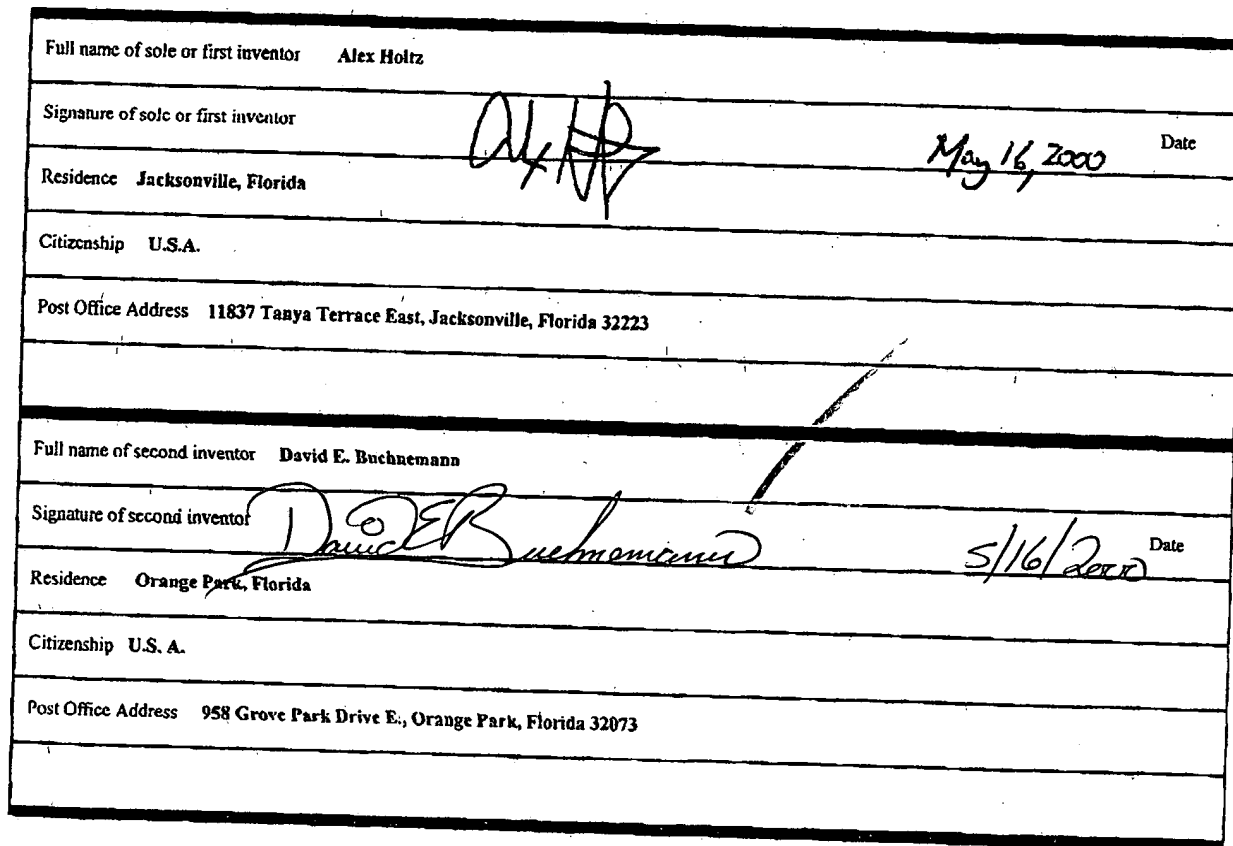 Full name of sole or first inventor Alex Holtz
Signature of sole or first inventor Alex Holtz May 16, 2000 Date
Residence Jacksonville, Florida
Citizenship U.S.A.
Post Office Address 11837 Tanya Terrace East, Jacksonville, Florida 32223
Full name of second inventor David E. Buehnemann
Signature of second inventor David E Buehnemann 5/16/2000 Date
Residence Orange Park, Florida
Citizenship U.S. A.
Post Office Address 958 Grove Park Drive E., Orange Park, Florida 32073